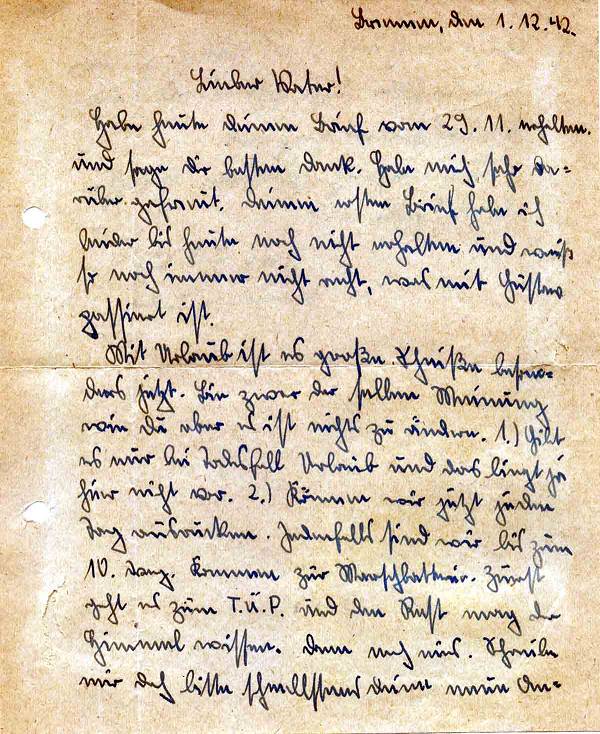 Bremen, den 1.12.42.
Lieber Vater!
Habe heute deinen Brief vom 29.11. erhalten.
und sage dir besten Dank. Habe mich sehr da-
rüber gefreut. Deinen ersten Brief habe ich
leider bis heute noch nicht erhalten und weiß
so noch immer nicht recht, was mit Gustav
passiert ist.
Mit Urlaub ist es große Scheiße beson-
ders jetzt. Bin zwar der selben Meinung
wie Du aber es ist nichts zu ändern. 1.) Gibt
es nur bei Todesfall Urlaub und das liegt ja
hier nicht vor. 2.) Können wir jetzt jeden
Tag ausrücken. Jedenfalls sind wir bis zum
10. weg. Kommen zur Marschbatterie. Zuerst
geht es zum T.Ü.P. und den Rest mag der
Himmel wissen. Denn
Schreibe
mir doch bitte schnellstens Deine neue An-